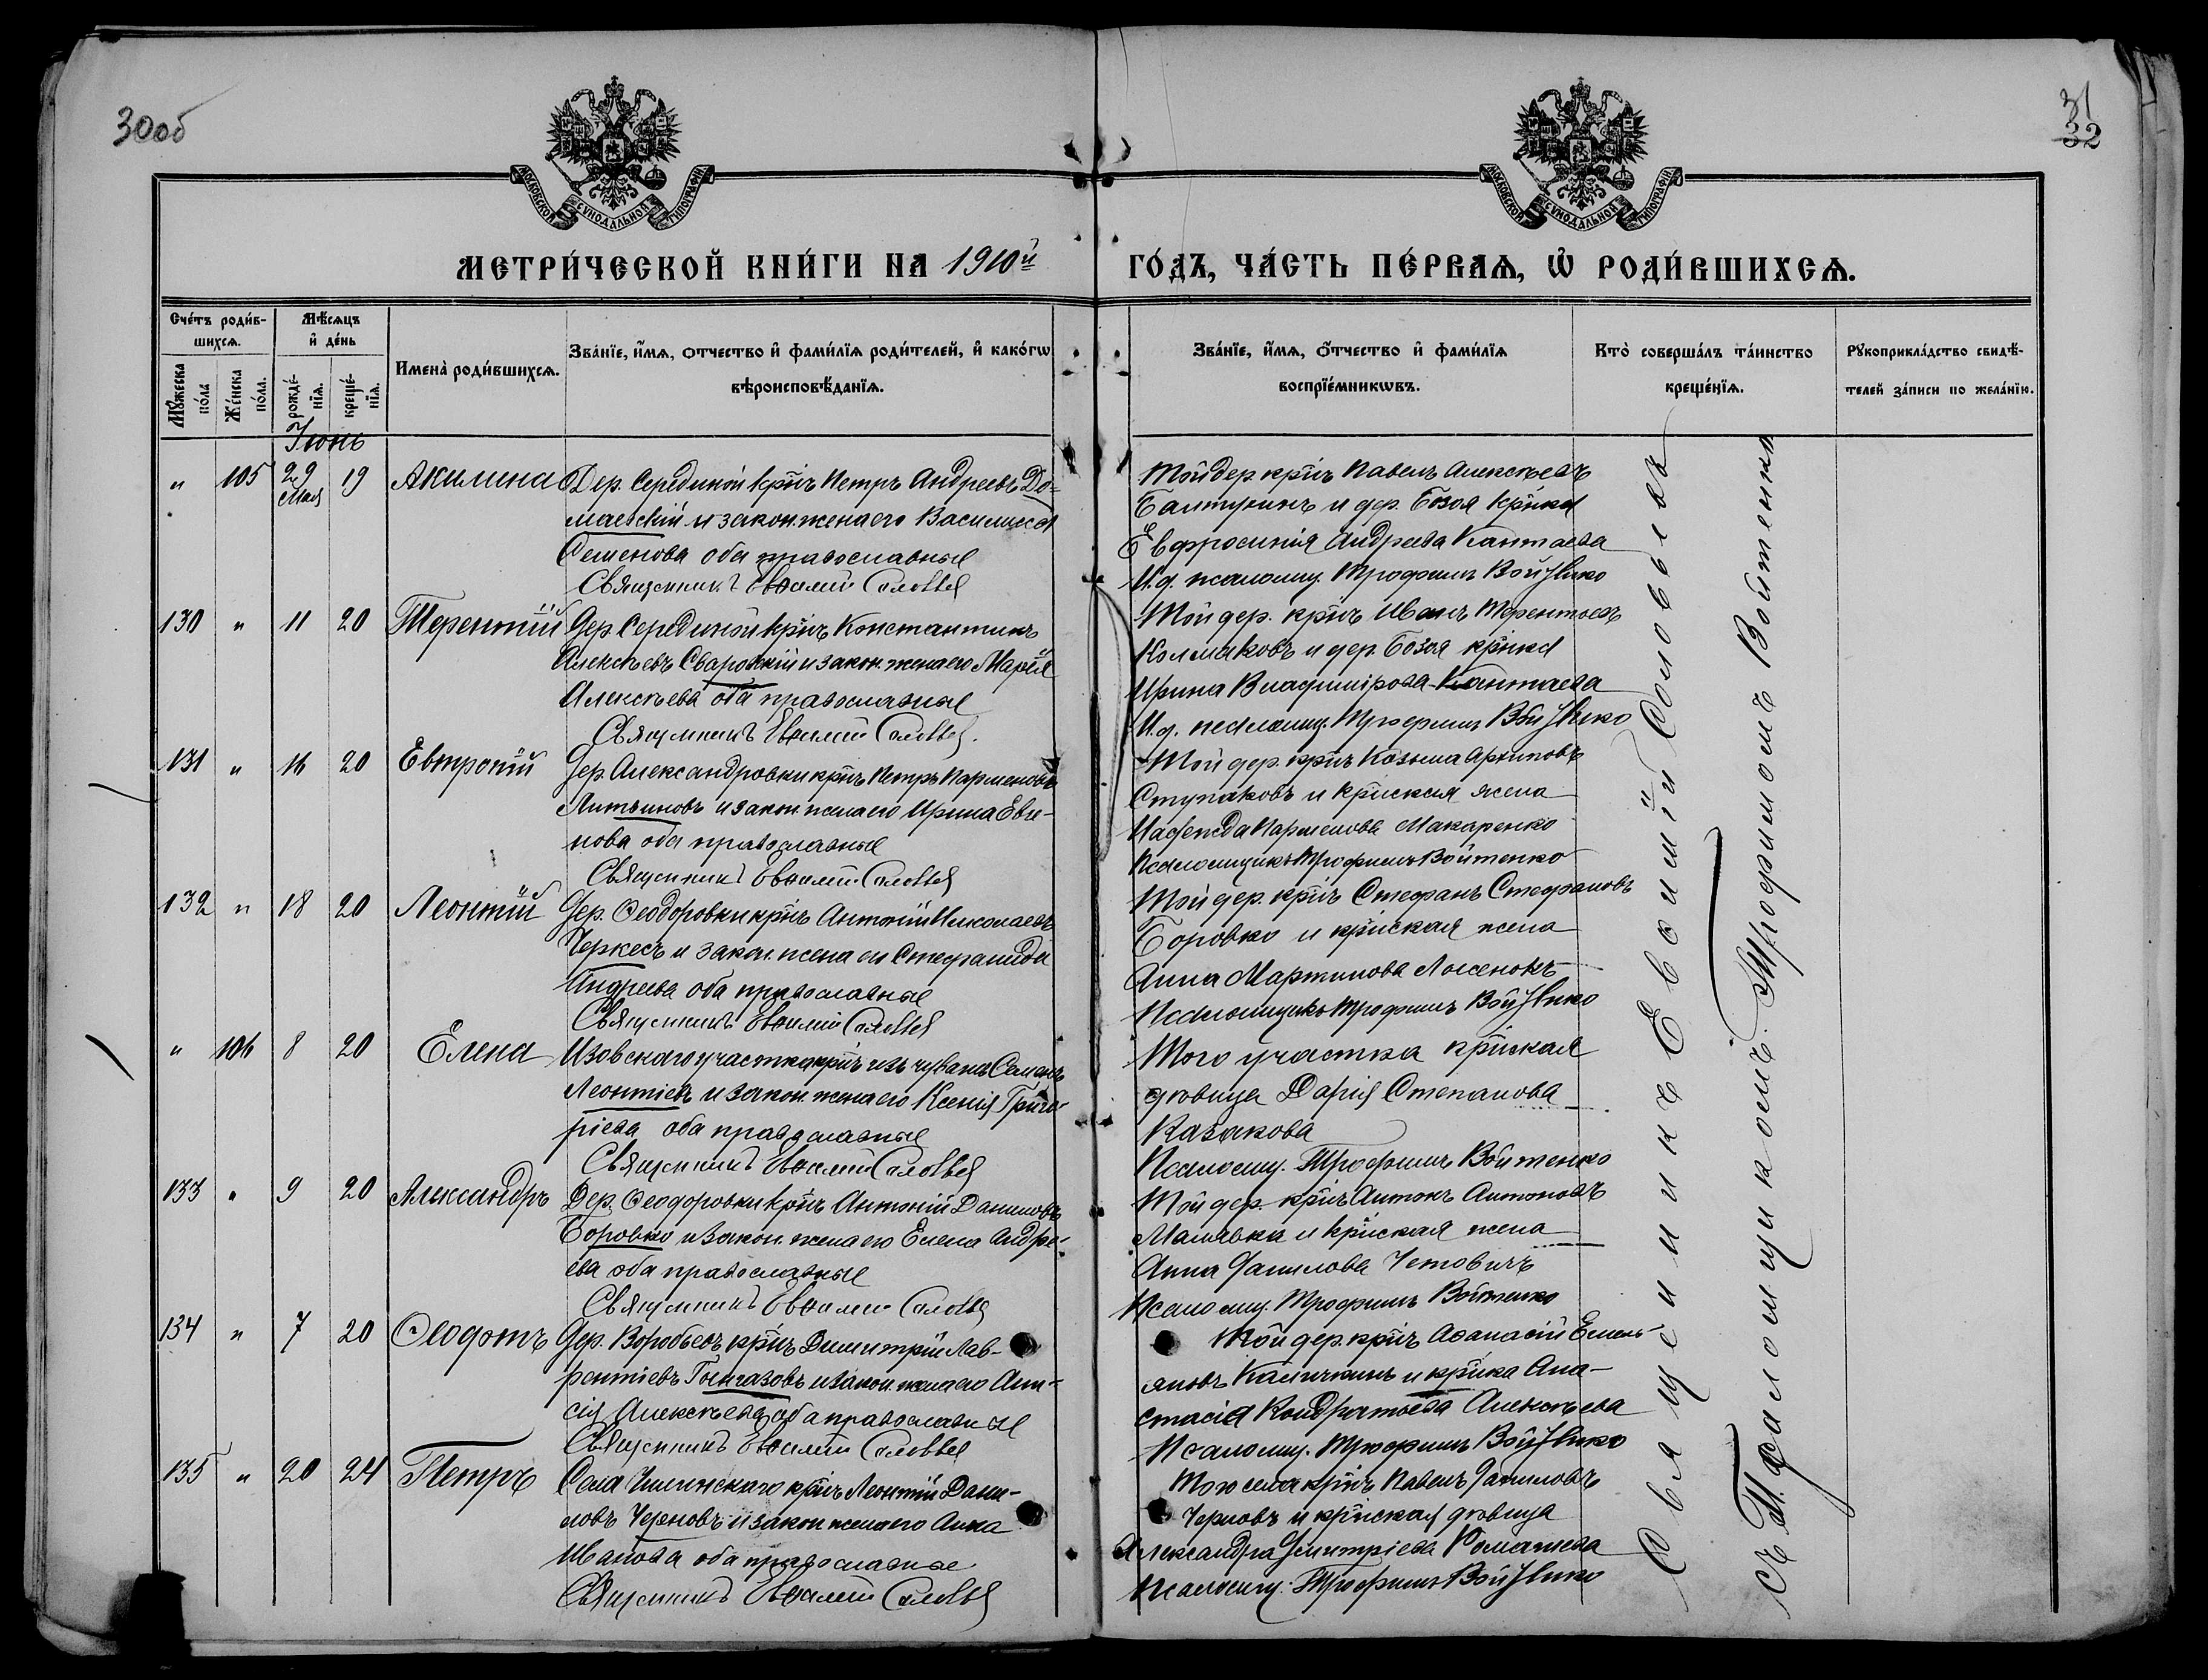 30 об
31
32
МОСКОВСКОЙ СѴНОДАЛЬНОЙ ТИПОГРАФІИ
МОСКОВСКОЙ СѴНОДАЛЬНОЙ ТИПОГРАФІИ
МЕТРИ́ЧЕСКОЙ КНИ́ГИ НА 1910й ГО́ДЪ, ЧА́СТЬ ПЕ́РВАѦ, Ѡ҆ РОДИ́ВШИХСѦ.
Сче́тъ роди́в-
шихсѧ.
Мꙋ́жеска по́ла
Же́нска по́ла.
Мѣ́сѧцъ
и҆ де́нь
рожде́-
нїѧ.
креще́-
нїѧ.
Имена̀ роди́вшихсѧ.
Зва́нїе, и҆́мѧ, ѻ҆́тчество и҆ фами́лїѧ роди́телей, и҆ како́гѡ
вѣроисповѣ́данїѧ.
Зва́нїе, и҆́мѧ, ѻ҆́тчество и҆ фами́лїѧ
воспрїе́мникѡвъ.
Кто̀ соверша́лъ та́инство
креще́нїѧ.
Рꙋкоприкла́дство свидѣ́-
телей за́писи по жела́нїю.
Іюнь
" 105 29 Мая 19 Акилина Дер. Серединой кр͠нъ Петръ Андреевъ До-
маевскій и закон. жена его Василисса
Семенова оба православные
Священникъ Евѳимій Соловьевъ
Той дер. кр͠нъ Павелъ Алексѣевъ
и дер. Бозоя кр͠нка
Евфросинія Андреева Кантаева
И. д. псаломщ. Трофимъ Войтенко
130 " 11 20 Терентій Дер. Серединой кр͠нъ Константинъ
Алексѣевъ и закон. жена его Марія
Алексѣева оба православные
Священникъ Евѳимій Соловьевъ
Той дер. кр͠нъ Иванъ Терентьевъ
Колмаковъ и дер. Бозоя кр͠нка
Ирина Владимірова Кантаева
И. д. псаломщ. Трофимъ Войтенко
131 " 16 20 Евтропій Дер. Александровки кр͠нъ Петръ Парменовъ
Литвиновъ и закон. жена его Ирина Евге-
нова оба православные
Священникъ Евѳимій Соловьевъ
Той дер. кр͠нъ Козьма Архиповъ
Ступаковъ и кр͠нская жена
Надежда Парменова Макаренко
Псаломщикъ Трофимъ Войтенко
132 " 18 20 Леонтій Дер. Ѳеодоровки кр͠нъ Антоній Николаевъ
Черкесъ и закон. жена его Стефанида
Андреева оба православные
Священникъ Евѳимій Соловьевъ
Той дер. кр͠нъ Стефанъ Стефановъ
Боровко и кр͠нская жена
Анна Мартинова
Псаломщикъ Трофимъ Войтенко
" 106 8 20 Елена участка кр͠нъ изъ чувашъ Семенъ
Леонтіевъ и закон. жена его Ксенія Григо-
ріева оба православные
Священникъ Евѳимій Соловьевъ
Того участка кр͠нская
дѣвица Дарія Степанова
Казакова
Псаломщ. Трофимъ Войтенко
133 " 9 20 Александръ Дер. Ѳеодоровки кр͠нъ Антоній Даниловъ
Боровко и закон. жена его Елена Андре-
ева оба православные
Священникъ Евѳимій Соловьевъ
Той дер. кр͠нъ Антонъ Антоновъ
Малявка и кр͠нская жена
Анна Данилова
Псаломщ. Трофимъ Войтенко
134 " 7 20 Ѳеодотъ Дер. Воробьевъ кр͠нъ Димитрій Лав-
рентіевъ и закон. жена его Ани-
сія Алексѣева оба православные
Священникъ Евѳимій Соловьевъ
Той дер. кр͠нъ Аѳанасій Емель-
яновъ и кр͠нка Ана-
стасія Кондратьева Алексѣева
Псаломщ. Трофимъ Войтенко
135 " 20 24 Петръ Села кр͠нъ Леонтій Дани-
ловъ Черновъ и закон. жена его Анна
Иванова оба православные
Священникъ Евѳимій Соловьевъ
Того села кр͠нъ Павелъ Даниловъ
Черновъ и кр͠нская дѣвица
Александра Димитріева Ромашева
Псаломщ. Трофимъ Войтенко
Священникъ Евѳимій Соловьевъ
съ И. псаломщикомъ Трофимомъ Войтенко